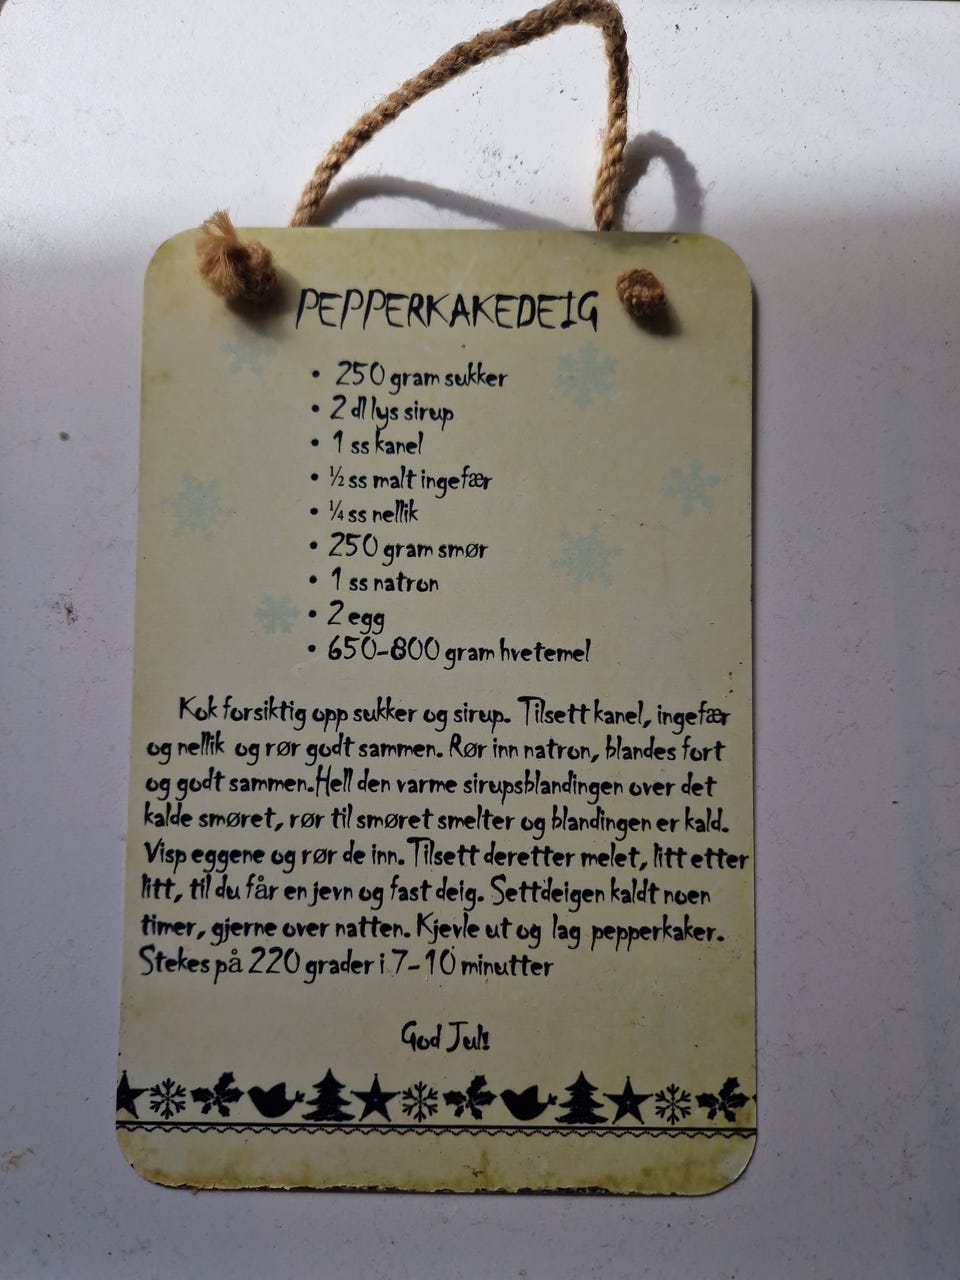 PEPPERKAKEDEIG
• 250 gram sukker
• 2 dl lys sirup
• 1 ss kanel
• ½ ss malt ingefær
• ¼ ss nellik
• 250 gram smør
• 1 ss natron
• 2 egg
• 650-800 gram hvetemel
Kok forsiktig opp sukker og sirup. Tilsett kanel, ingefær
og nellik og rør godt sammen. Rør inn natron, blandes fort
og godt sammen.Hell den varme sirupsblandingen over det
kalde smøret, rør til smøret smelter og blandingen er kald.
Visp eggene og rør de inn. Tilsett deretter melet, litt etter
litt, til du får en jevn og fast deig. Sett deigen kaldt noen
timer, gjerne over natten. Kjevle ut og lag pepperkaker.
Stekes på 220 grader i 7-10 minutter
God Jul!